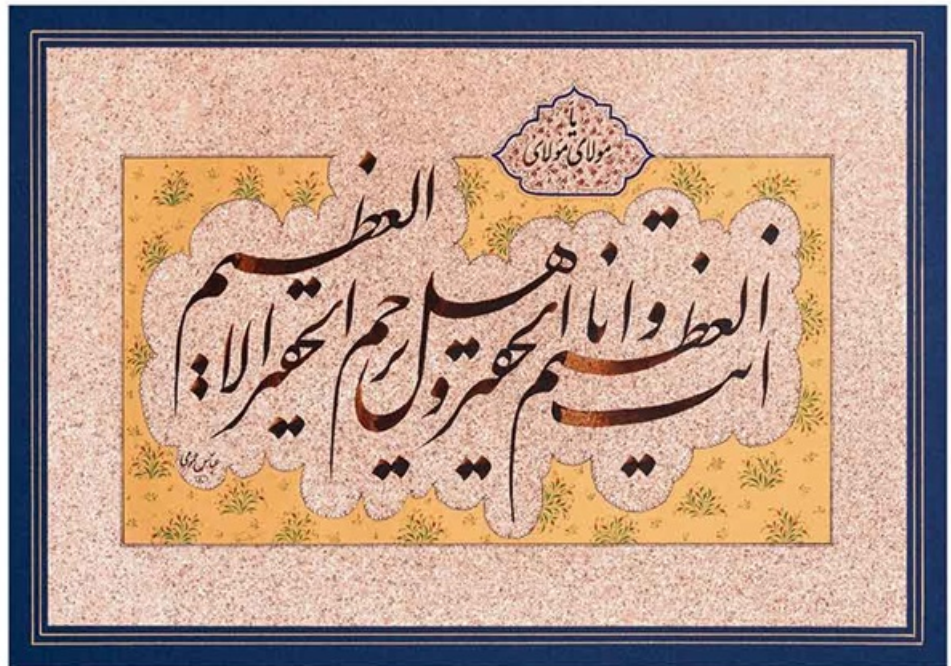 یا
مولای مولای
انت العظیم و انا الحقیر و هل یرحم الحقیر الا العظیم
عباس